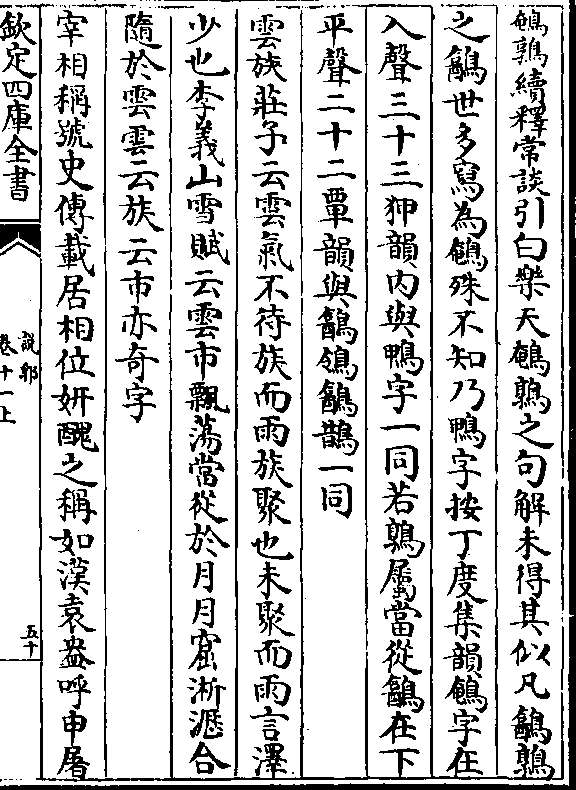 鵪鶉續釋常談引白樂天鵪鶉之句解未得其似凡鶕鶉
之鶕世多寫為鵪殊不知乃鴨字按丁度集韻鵪字在
入聲三十三狎韻内與鴨字一同若鶉屬當從鶕在下
平聲二十二覃韻與鶕䳺鶕䧹一同
雲族莊子云雲氣不待族而雨族聚也未聚而雨言澤
少也李義山雪賦云雲市飄蕩當從於月月窟淅瀝合
隨於雲雲云族云市亦奇字
宰相稱號史傳載居相位妍醜之稱如漢袁盎呼申屠
欽定四庫全書
說郛
卷十一上
五十